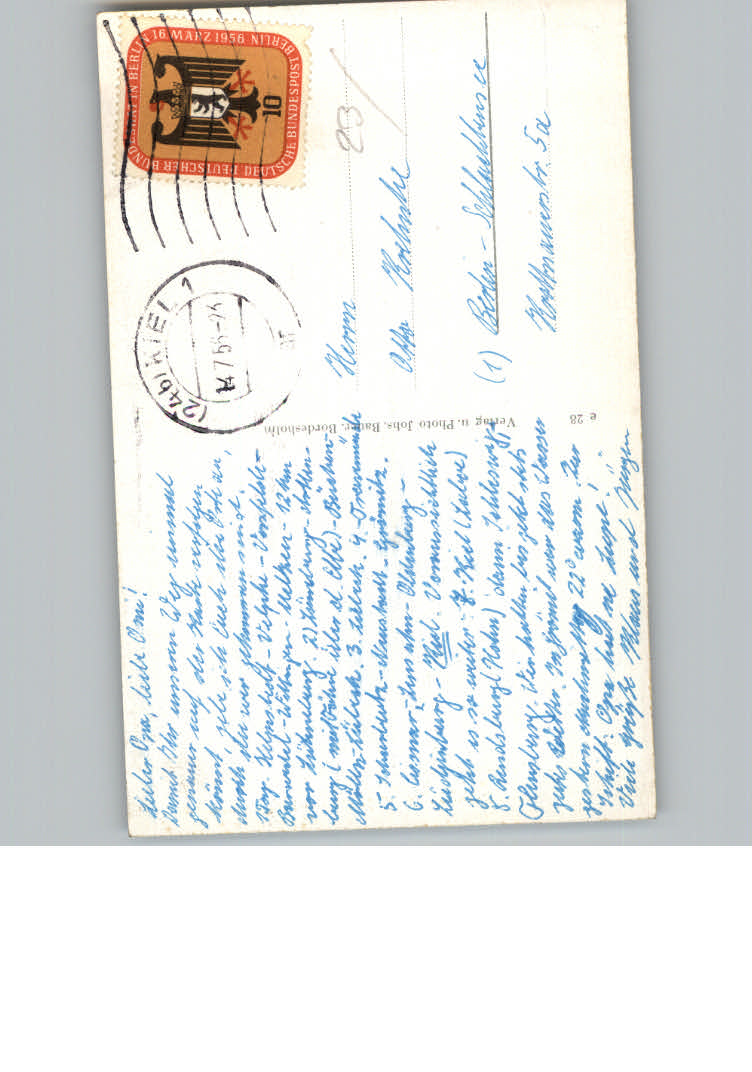 Lieber Opa, liebe Omi!
Damit Ihr unseren Weg einmal
genauer auf der Karte verfolgen
könnt, gebe ich Euch die Orte an,
durch die wir gekommen sind.
1. Tag. Helmstedt - Velpke - Vorsfelde -
Brome - Wittingen - Uelzen - 12 km
vor Lüneburg. 2) Lüneburg -
burg (mit Fähre über d. Elbe) - Büchen -
Mölln - Lübeck. 3. Lübeck. 4. Travemünde
5. Scharbeutz - Neustadt - Grömitz.
6. Cismar - Lensahn - Oldenburg -
Lütjenburg - Kiel. Voraussichtlich
geht es so weiter: 7. Kiel
8. Rendsburg dann Schleswig -
Flensburg. Wir hatten bis jetzt stets
gutes Wetter. In Grömitz war das Wasser
gestern 22° warm. Die
Schrift: Opa hat ne Lupe!
Viele Grüße Klaus und Jürgen
Verlag u. Photo Johs. Bauer, Bordesholm
e 28
DEUTSCHER BUNDESRAT IN BERLIN 16. MÄRZ 1956
DEUTSCHE BUNDESPOST BERLIN
10
(24b) KIEL 1
14.7.56-23
23/
Herrn
Otto
(1) Berlin - Schlachtensee
5a